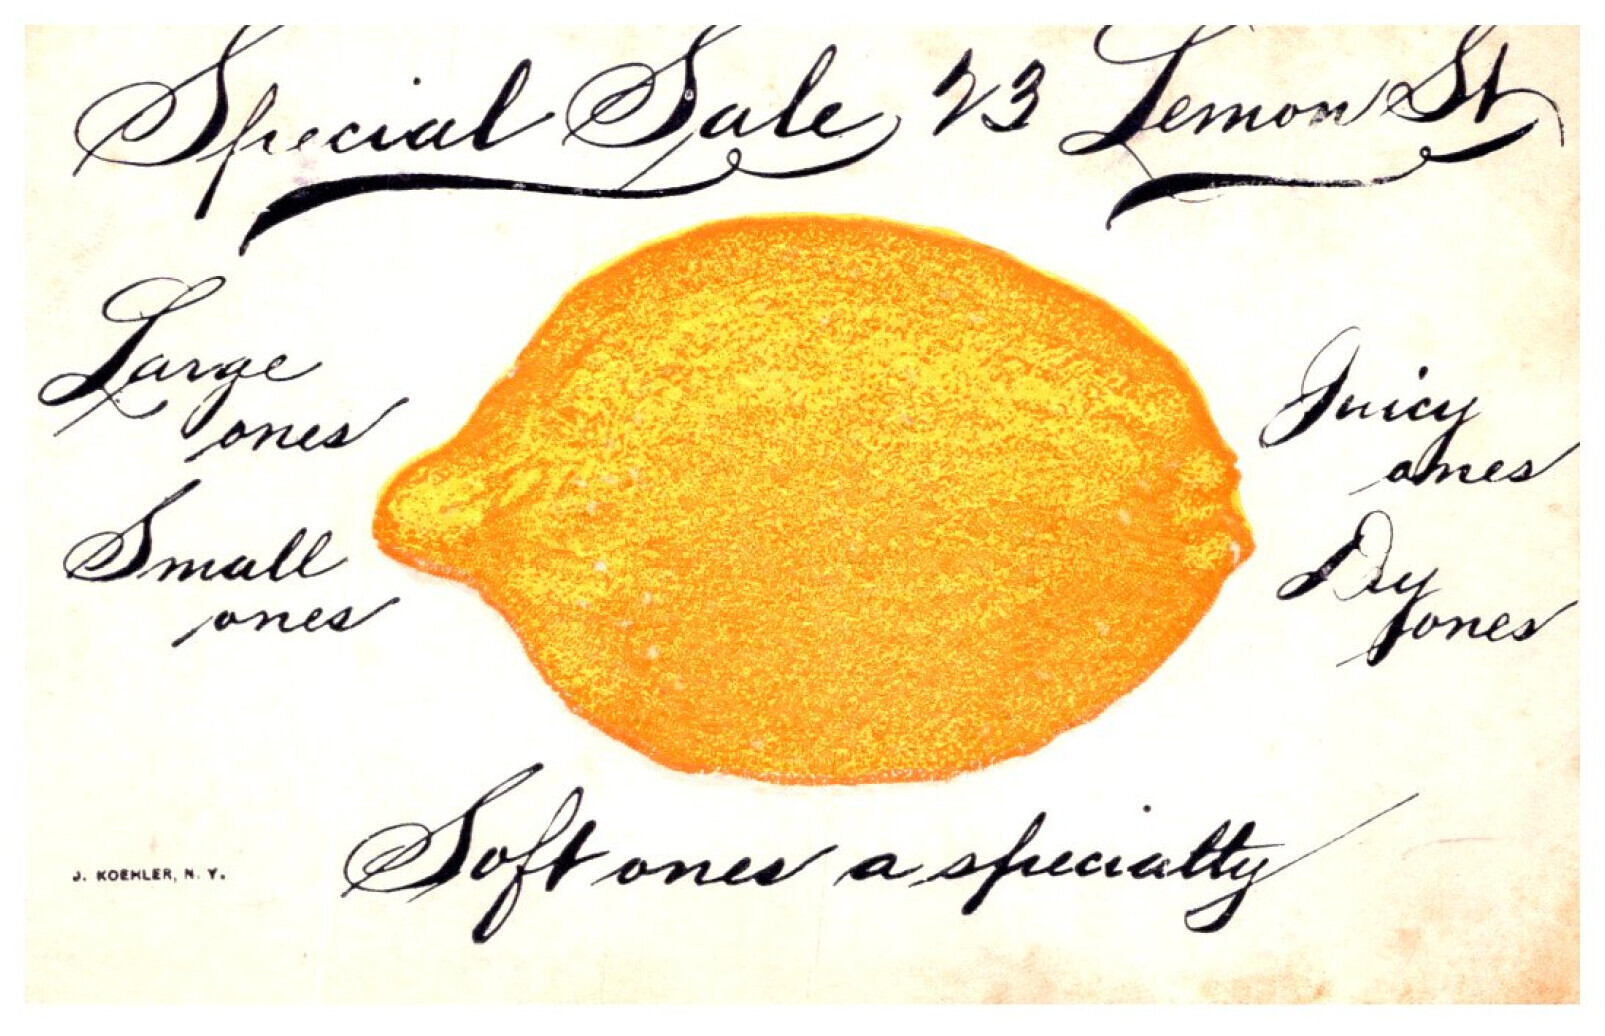 Special Sale 23 Lemon St
Large
ones
Small
ones
Juicy
ones
Dry
ones
Soft ones a specialty
J. KOEHLER, N. Y.